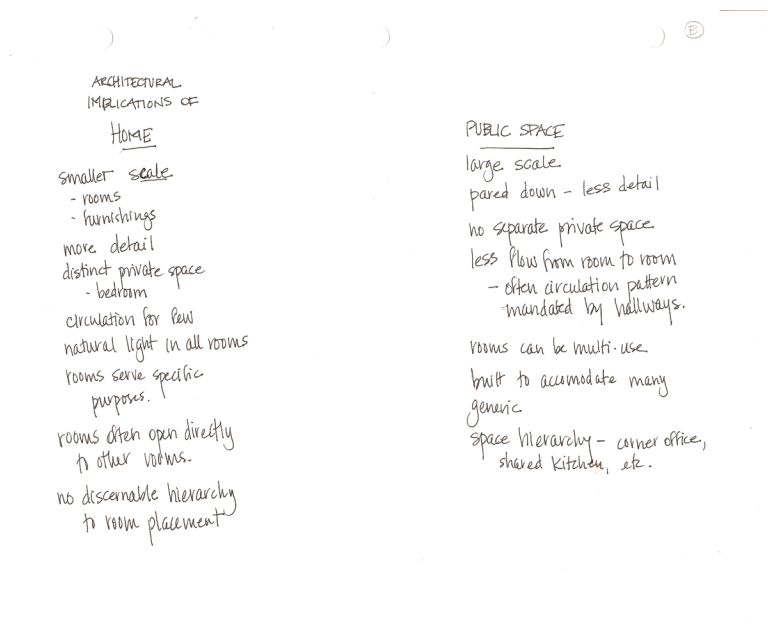 B
ARCHITECTURAL
IMPLICATIONS OF
HOME
smaller scale
- rooms
- furnishings
more detail
distinct private space
- bedroom
circulation for few
natural light in all rooms
rooms serve specific
purposes.
rooms often open directly
to other rooms.
no discernable hierarchy
to room placement
PUBLIC SPACE
large scale
pared down - less detail
no separate private space
less flow from room to room
- often circulation pattern
mandated by hallways.
rooms can be multi-use
built to accomodate many
generic
space hierarchy - corner office,
shared kitchen, etc.